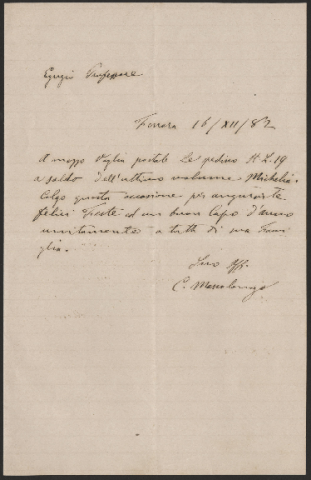 Egregio Professore
Ferrara 16/XII/82
A mezzo Vaglia postale Le pedino It L. 19
a saldo dell'ultimo volume
Colgo questa occasione per augurarle
felici feste ed un buon Capo d'anno
unitamente a tutti di sua Fami
glia.
Suo Aff.
C.